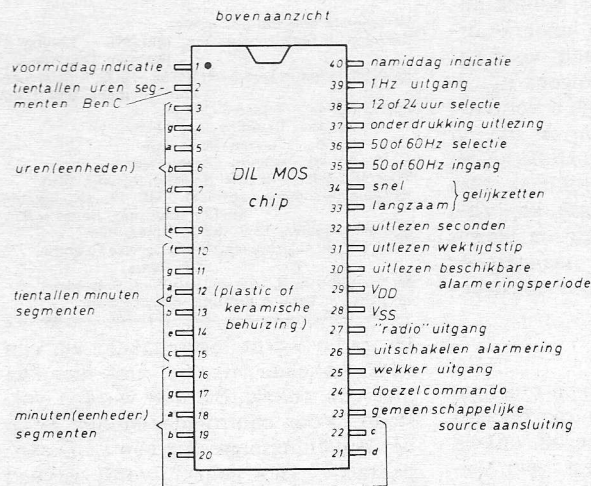 bovenaanzicht
voormiddag indicatie
tientallen uren seg-
menten B en C
uren (eenheden)
tientallen minuten
segmenten
minuten (eenheden)
segmenten
1
2
f 3
g 4
a 5
b 6
d 7
c 8
e 9
f 10
g 11
a
d 12
b 13
e 14
c 15
f 16
g 17
a 18
b 19
e 20
DIL MOS
chip
(plastic of
keramische
behuizing)
40 namiddag indicatie
39 1Hz uitgang
38 12 of 24 uur selectie
37 onderdrukking uitlezing
36 50 of 60Hz selectie
35 50 of 60Hz ingang
34 snel
33 langzaam
gelijkzetten
32 uitlezen seconden
31 uitlezen wektijdstip
30 uitlezen beschikbare
alarmeringsperiode
29 VDD
28 VSS
27 "radio" uitgang
26 uitschakelen alarmering
25 wekker uitgang
24 doezelcommando
23 gemeenschappelijke
source aansluiting
22 c
21 d